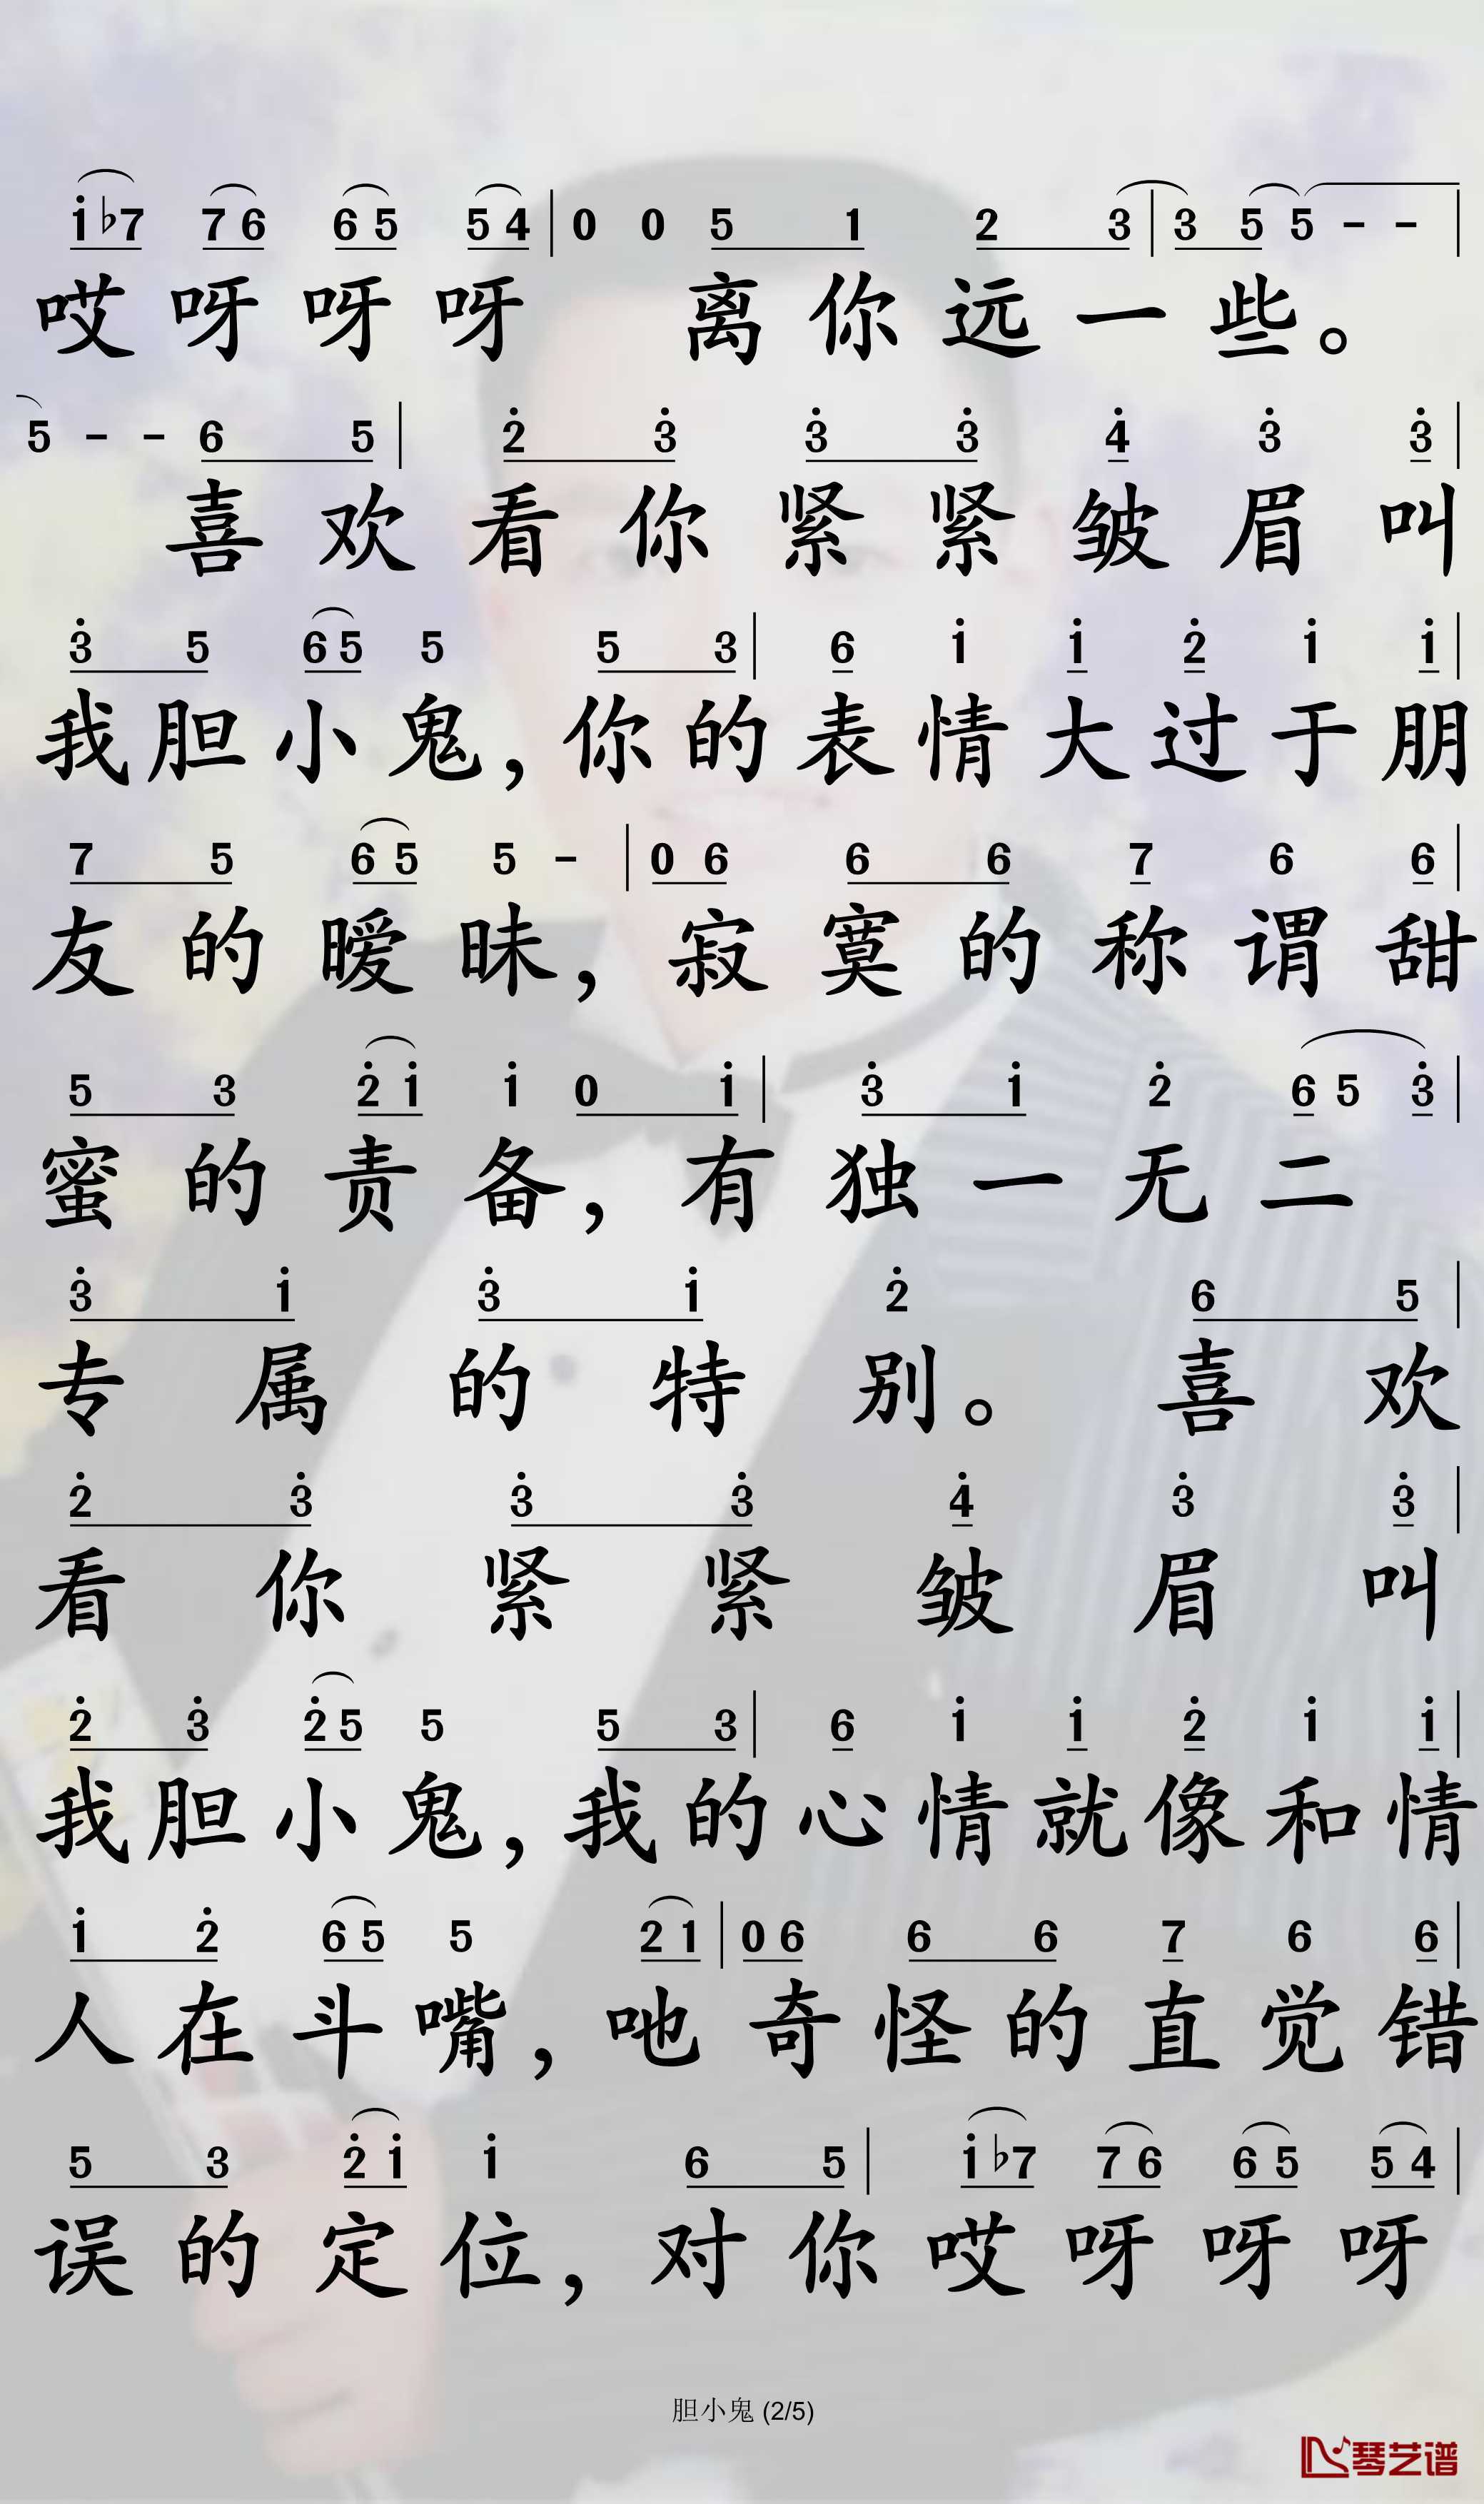 i ♭7 7 6 6 5 5 4 | 0 0 5 1 2 3 | 3 5 5 - - |
哎呀呀呀 离你远一些。
5 - - 6 5 | 2̇ 3̇ 3̇ 3̇ 4̇ 3̇ 3̇ |
喜欢看你紧紧皱眉叫
3̇ 5 6 5 5 5 3 | 6 i i 2̇ i i |
我胆小鬼,你的表情大过于朋
7 5 6 5 5 - | 0 6 6 6 7 6 6 |
友的暧昧,寂寞的称谓甜
5 3 2̇ i i 0 i | 3̇ i 2̇ 6 5 3̇ |
蜜的责备,有独一无二
3̇ i 3̇ i 2̇ 6 5 |
专属的特别。喜欢
2̇ 3̇ 3̇ 3̇ 4̇ 3̇ 3̇ |
看你紧紧皱眉叫
2̇ 3̇ 2̇ 5 5 5 3 | 6 i i 2̇ i i |
我胆小鬼,我的心情就像和情
i 2̇ 6 5 5 2 1 | 0 6 6 6 7 6 6 |
人在斗嘴,吔奇怪的直觉错
5 3 2̇ i i 6 5 | i ♭7 7 6 6 5 5 4 |
误的定位,对你哎呀呀呀
胆小鬼 (2/5)
琴艺谱